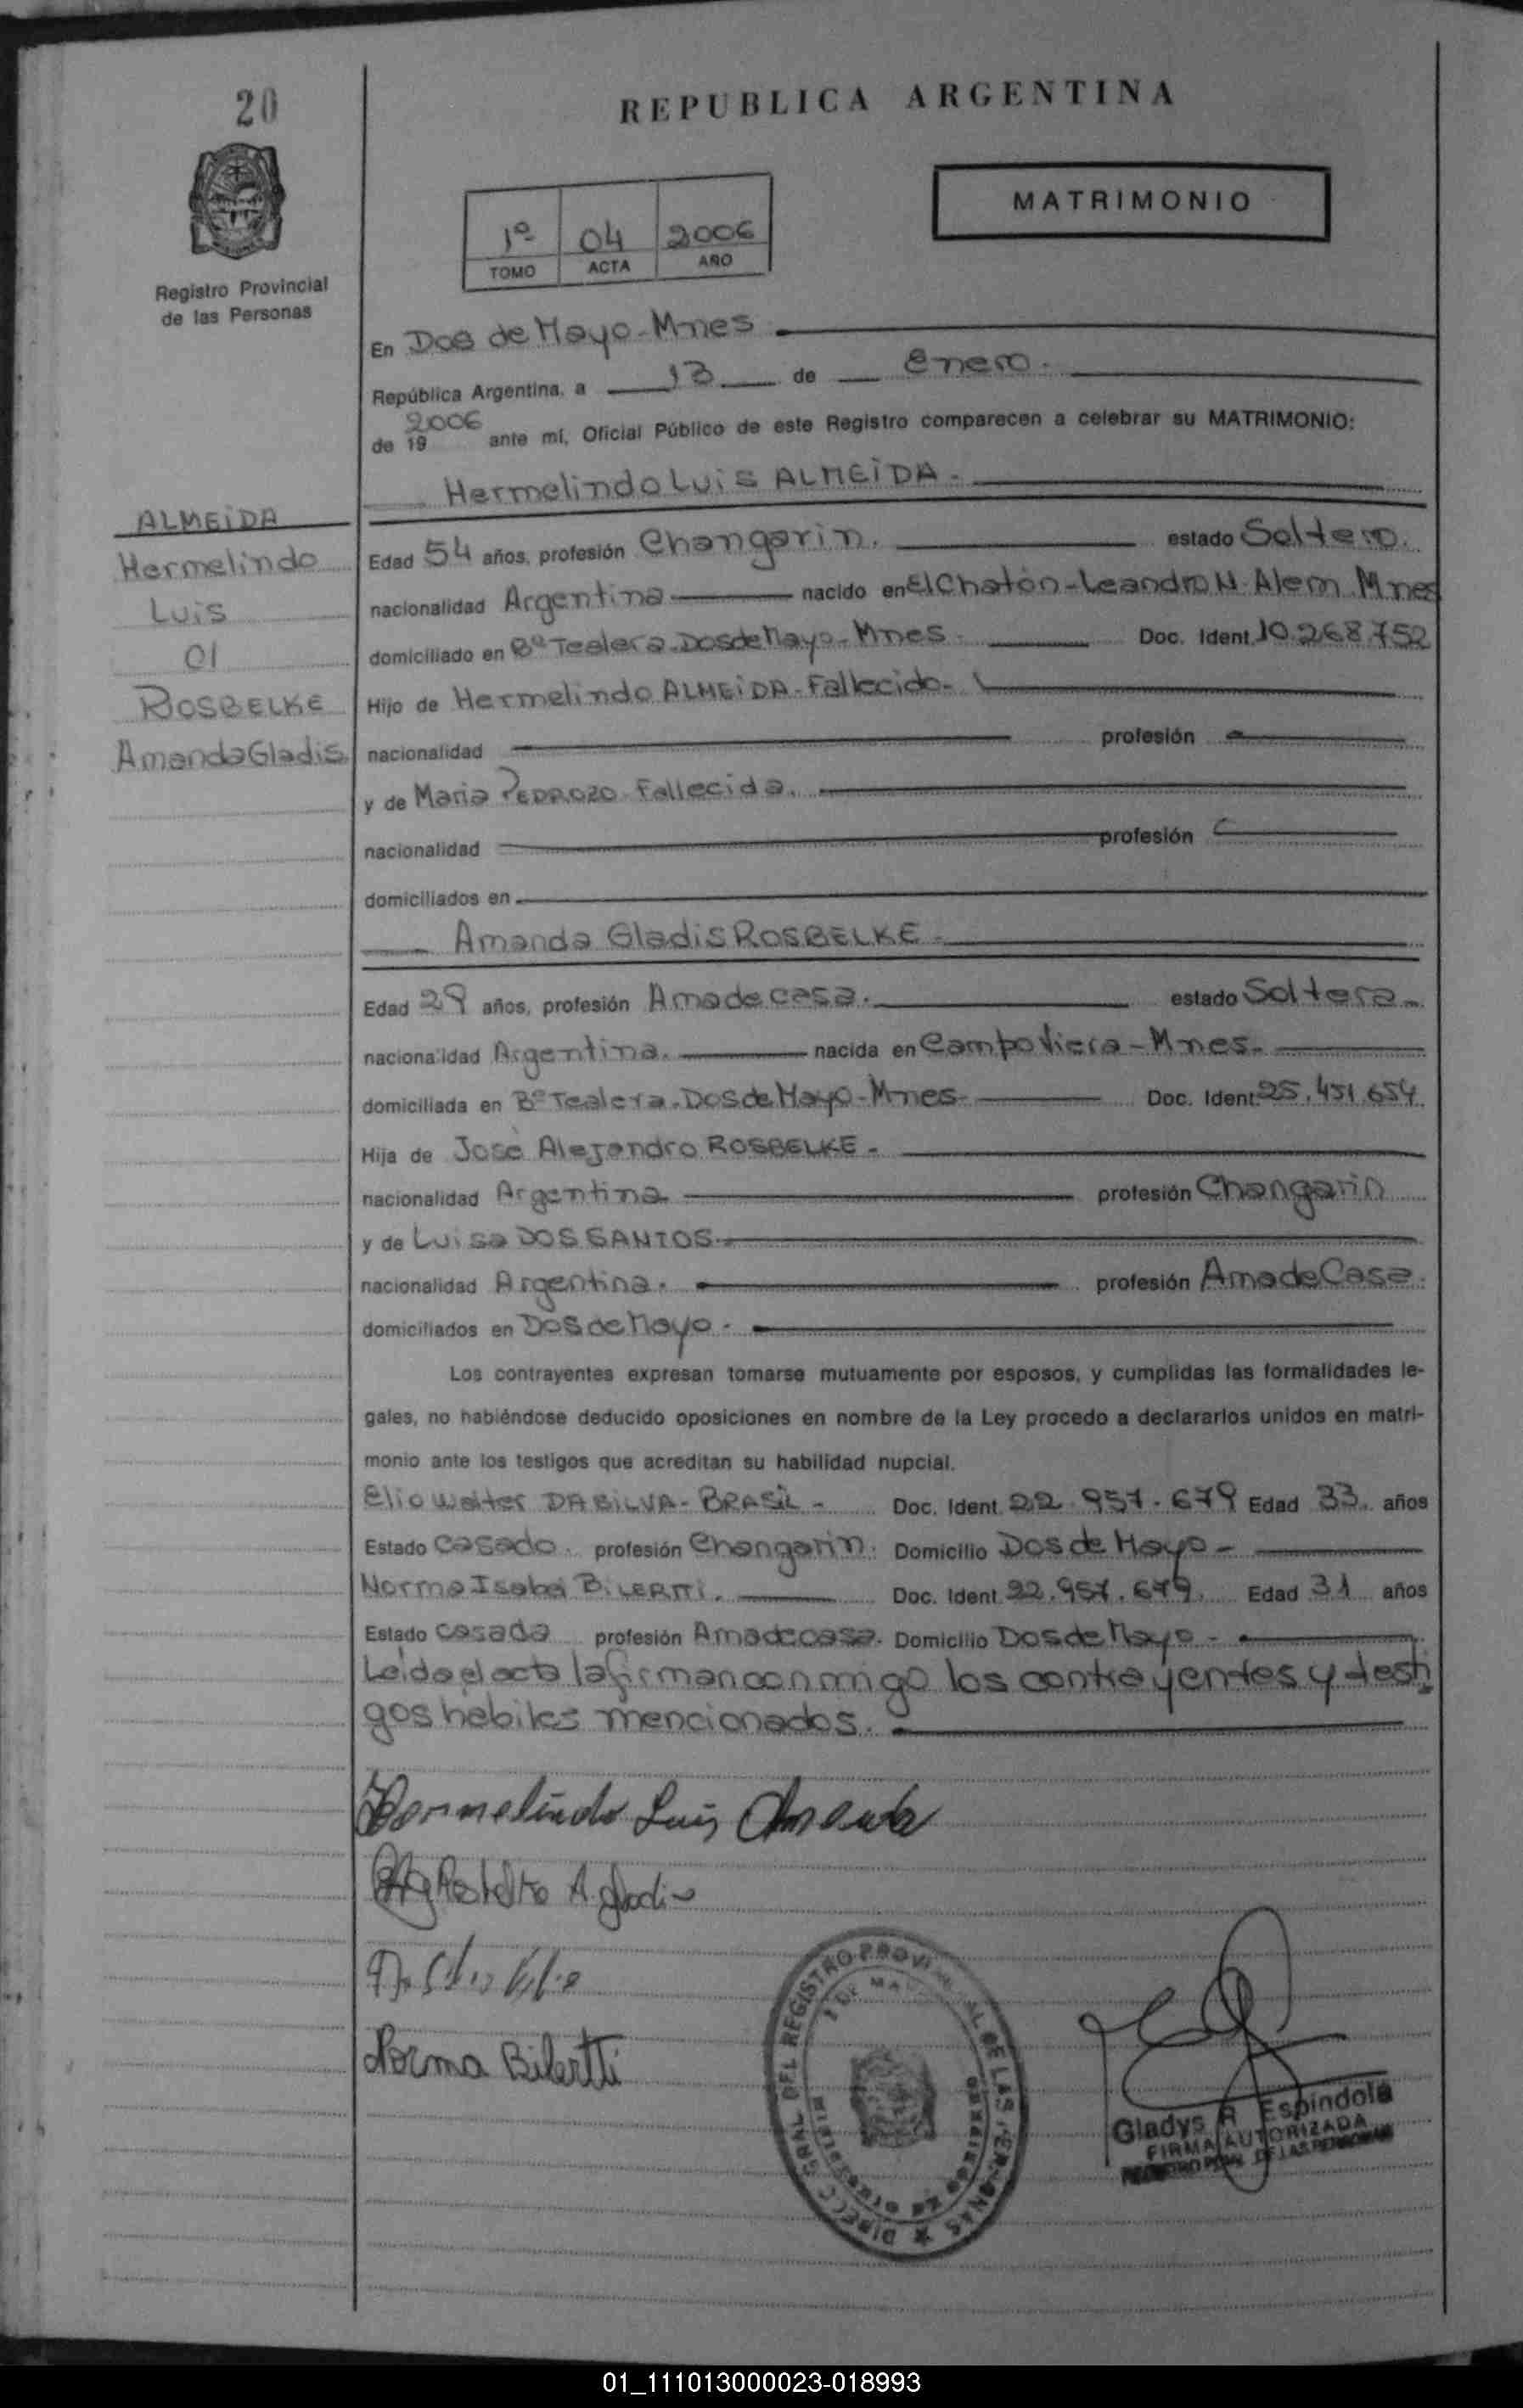 20
REPUBLICA ARGENTINA
MATRIMONIO
1º 04 2006
TOMO ACTA AÑO
Registro Provincial
de las Personas
En Dos de Mayo-Mnes
República Argentina, a 13 de Enero.
de 19 2006 ante mí, Oficial Público de este Registro comparecen a celebrar su MATRIMONIO:
Hermelindo Luis ALMEIDA.
ALMEIDA
Hermelindo
Luis
01
ROSBELKE
Amanda Gladis
Edad 54 años, profesión Changarin. estado Soltero.
nacionalidad Argentina nacido en El Chatón-Leandro N. Alem. Mnes
domiciliado en Bº Tealera-Dos de Mayo-Mnes Doc. Ident. 10.268.752
Hijo de Hermelindo ALMEIDA-Fallecido-
nacionalidad profesión
y de Maria PEDROZO-Fallecida.
nacionalidad profesión
domiciliados en
Amanda Gladis ROSBELKE-
Edad 29 años, profesión Ama de casa. estado Soltera-
nacionalidad Argentina. nacida en Campo Viera-Mnes-
domiciliada en Bº Tealera-Dos de Mayo-Mnes- Doc. Ident. 25.451.654
Hija de José Alejandro ROSBELKE-
nacionalidad Argentina profesión Changarin
y de Luisa DOS SANTOS-
nacionalidad Argentina. profesión Ama de Casa.
domiciliados en Dos de Mayo-
Los contrayentes expresan tomarse mutuamente por esposos, y cumplidas las formalidades le-
gales, no habiéndose deducido oposiciones en nombre de la Ley procedo a declararlos unidos en matri-
monio ante los testigos que acreditan su habilidad nupcial.
Elio Walter DA SILVA-BRASIL- Doc. Ident. 22.957.679 Edad 33 años
Estado Casado. profesión Changarin. Domicilio Dos de Mayo-
Norma Isabel BILERTTI. Doc. Ident. 22.957.679. Edad 31 años
Estado casada profesión Ama de casa. Domicilio Dos de Mayo-
Leida el acta la firman conmigo los contrayentes y testi
gos habiles mencionados.
Hermelindo Luis
Norma Bilertti
DIRECC. GRAL. DEL REGISTRO PROVINCIAL DE LAS PERSONAS
2 DE MAYO
Gladys R. Espindola
FIRMA AUTORIZADA
REGISTRO PCIAL. DE LAS PERSONAS
01_111013000023-018993